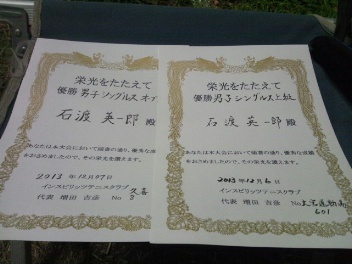 栄光をたたえて
優勝 男子シングルス オープ
石渡 英一郎 殿
あなたは本大会において頭書の通り、優秀な成績
をおさめましたので、その栄光を讃えます。
2013年12月07日
インスピリッツテニスクラブ
代表 増田 吉彦 No
栄光をたたえて
優勝 男子シングルス上級
石渡 英一郎 殿
あなたは本大会において頭書の通り、優秀な成績
をおさめましたので、その栄光を讃えます。
2013年12月6日
インスピリッツテニスクラブ
代表 増田 吉彦 No
601